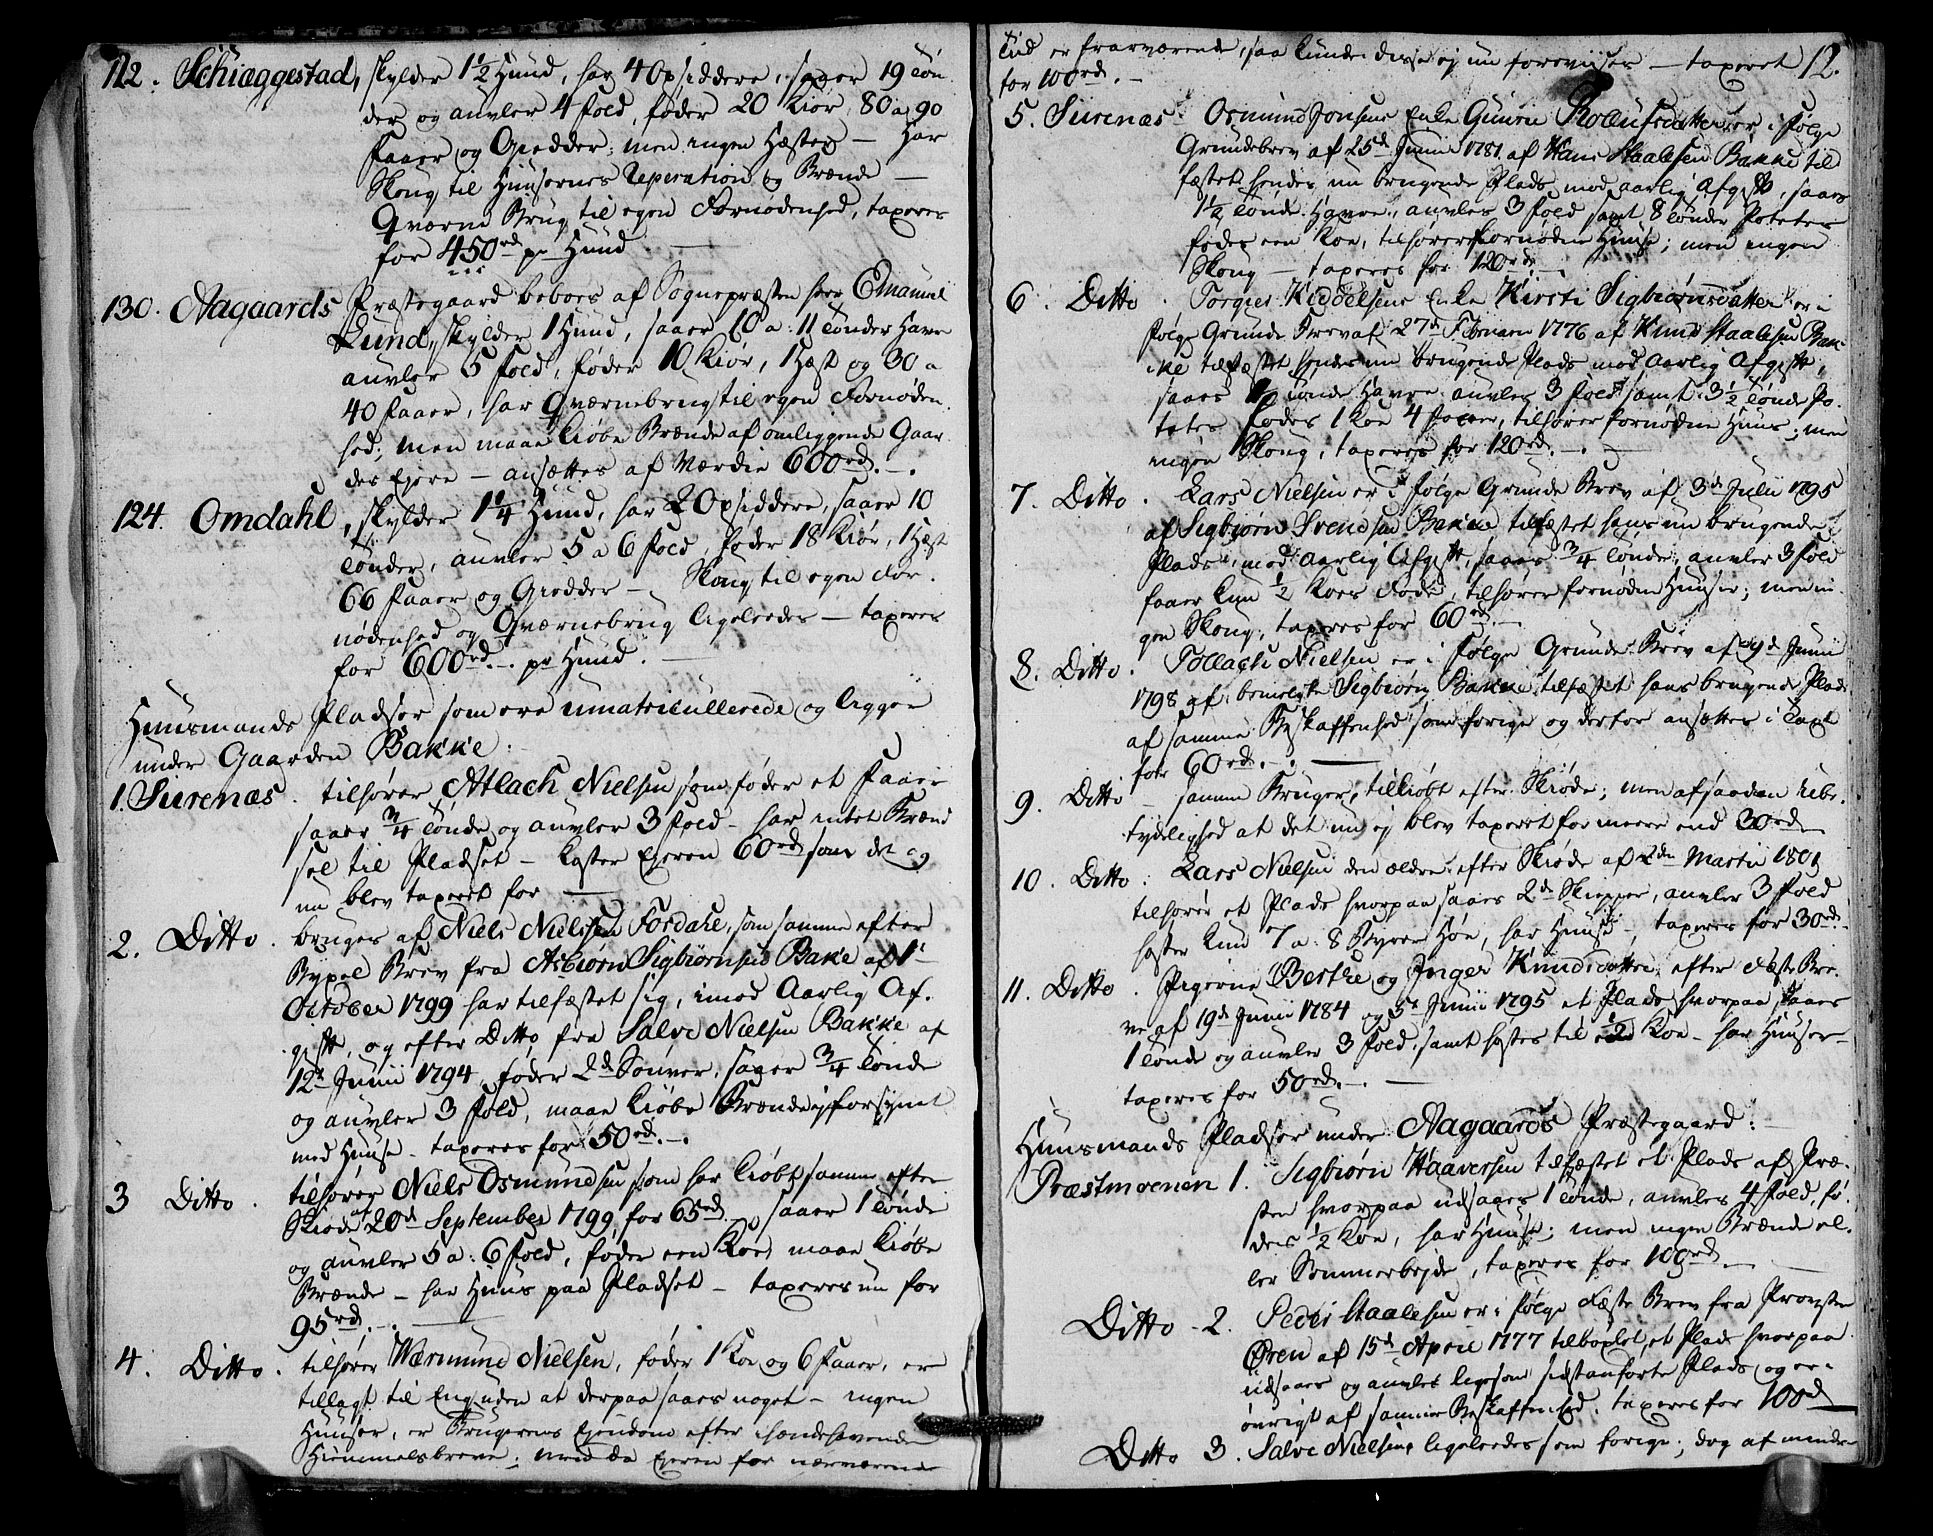 112. Schiæggestad, skylder 1½ Huud, har 4 Opsiddere, saaer 19 Tøn-
der og auvler 4 fold, føder 20 Kiør, 80 a 90
Faaer og Gjedder, men ingen Hæster — Har
Skoug til Huusernes Reperation og Brænde —
Qværne Brug til egen Fornødenhed, taxeres
for 450rd pr Huud —
130. Aagaards Præstegaard beboes af Sognepræsten herr Emanuel
Lund, skylder 1 Huud, saaer 10 a: 11 Tønder Havre
auvler 5 fold, føder 10 Kiør, 1 Hæst og 30 a
40 Faaer, har Qværnebrug til egen Fornøden-
hed; men maae kiøbe Brænde af omliggende Gaar-
des Ejere — ansættes af Værdie 600rd.
124. Omdahl, skylder 1¼ Huud, har 2 Opsiddere, saaer 10
Tønder, auvler 5 a 6 fold, føder 18 Kiør, 1 Hæst
66 Faaer og Giedder — Skoug til egen For-
nødenhed og Qværnebrug ligeleedes — taxeres
for 600rd. pr Huud. —
Huusmands Pladser som ere umatricullerede og ligger
under Gaarden Bakke:
1. Surenæs. tilhører Atlach Nielsen som føder et Faaer
saaer ¾ Tønde og auvler 3 fold — har intet Brænd
sel til Pladset — koster Ejeren 60rd som det og
nu blev taxeret for —
2. Ditto. bruges af Niels Nielssen Fordahl, som samme efter
Bøxel Brev fra Asbiørn Sigbiørnsen Bakke af 1t
October 1799 har tilfæstet sig, imod Aarlig Af-
gift, og efter Ditto fra Salve Nielsen Bakke af
12t Junii 1794, føder 2de Souver, saaer ¾ Tønde
og auvler 3 fold, maae kiøbe Brænde, forsynet
med Huuse — taxeres for 50rd.
3 Ditto. tilhører Niels Osmundsen som har kiøbt samme efter
Skiøde af 20d September 1799 for 65rd — saaer 1 Tønde
og auvler 5 a: 6 fold, føder een Koe, maae kiøbe
Brænde — har Huus paa Pladset — taxeres nu for
95rd.
4. Ditto. tilhører Wærmund Nielsen, føder 1 Koe og 6 Faaer, er
tillagt til Eng uden at derpaa saaes noget — ingen
Huuser, er Brugerens Ejendom efter ihændehavende
Hiemmelsbreve; med da Ejeren for nærværende
12.
Tid er fraværende, saa kunde disse ej nu foreviises — taxeret
for 100rd. —
5. Surenæs. Osmund Jonsens Enke Gunrii Rolufsdatter er i følge
Grundebrev af 25d Junii 1781 af Hans Staalesen Bakke til
fæstet hendes nu brugende Plads mod aarlig Afgift, saaes
1½ Tønde Havre, auvles 3 fold samt 8 Tønder Potetes
fødes een Koe, tilhører fornøden Huuse; men ingen
Skoug — taxeres for 120rd.
6. Ditto. Torgier Kiddelsens Enke Kirsti Sigbiørnsdatter er i
følge Grunde Brev af 27d Februarii 1776 af Knud Staalesen Bak-
ke tilfæstet hendes nu brugende Plads mod Aarlig Afgift,
saaes 1 Tønde Havre auvles 3 fold samt 3½ Tønde Po-
tetes fødes 1 Koe 4 Faaer, tilhører fornøden Huus; men
ingen Skoug, taxeres for 120rd.
7. Ditto. Lars Nielsen er i følge Grunde Brev af 3d Julii 1795
af Sigbiørn Svendsen Bakke tilfæstet hans nu brugende
Plads, mod Aarlig Afgift, saaes ¾ Tønde, auvles 3 fold
faaer kun ½ Koes Føde, tilhører fornøden Huuse; men in-
gen Skoug, taxeres for 60rd.
8. Ditto. Tollach Nielsen er i følge Grunde Brev af 9d Junii
1798 af bemeldte Sigbiørn Bakke tilfæstet hans brugende Plads
af samme Beskaffenhed som forige og derfor ansættes i Taxt
for 60rd. —
9. Ditto — samme Bruger, tilkiøbt efter Skiøde; men af saadan Ube-
tydelighed at det nu ej blev taxeret for meere end 30rd
10. Ditto. Lars Nielsen den ældre efter Skiøde af 2den Martii 1801
tilhører et Plads hvorpaa saaes 2de Skiepper, auvler 3 fold
høster kun 7 a: 8 Byrer Høe, har Huuse, taxeres for 30rd.
11. Ditto. Pigerne Berthe og Inger Knudsdøttre, efter Fæste Bre-
ve af 19d Junii 1784 og 5t Junii 1795 et Plads hvorpaa saaes
1 Tønde og auvler 3 fold, samt høstes til ½ Koe — har Huuser —
taxeres for 50rd. —
Huusmands Pladser under Aagaards Præstegaard:
Præstmoenen 1. Sigbiørn Haaversen tilfæstet et Plads af Præ-
sten hvorpaa udsaaes 1 Tønde, auvles 4 fold, fø-
des ½ Koe, har Huuse; men ingen Brænde el-
ler Sommerbejde, taxeres for 100rd. —
Ditto — 2. Peder Staalesen er i følge Fæste Brev fra Provsten
Øren af 15d April 1777 tilbøxlet et Plads hvorpaa
udsaaes og auvles ligesom sidstanførte Plads og er i
øvrigt af samme Beskaffenhed, taxeres for 100rd
Ditto 3. Salve Nielsen, ligeleedes som forige; dog af mindre